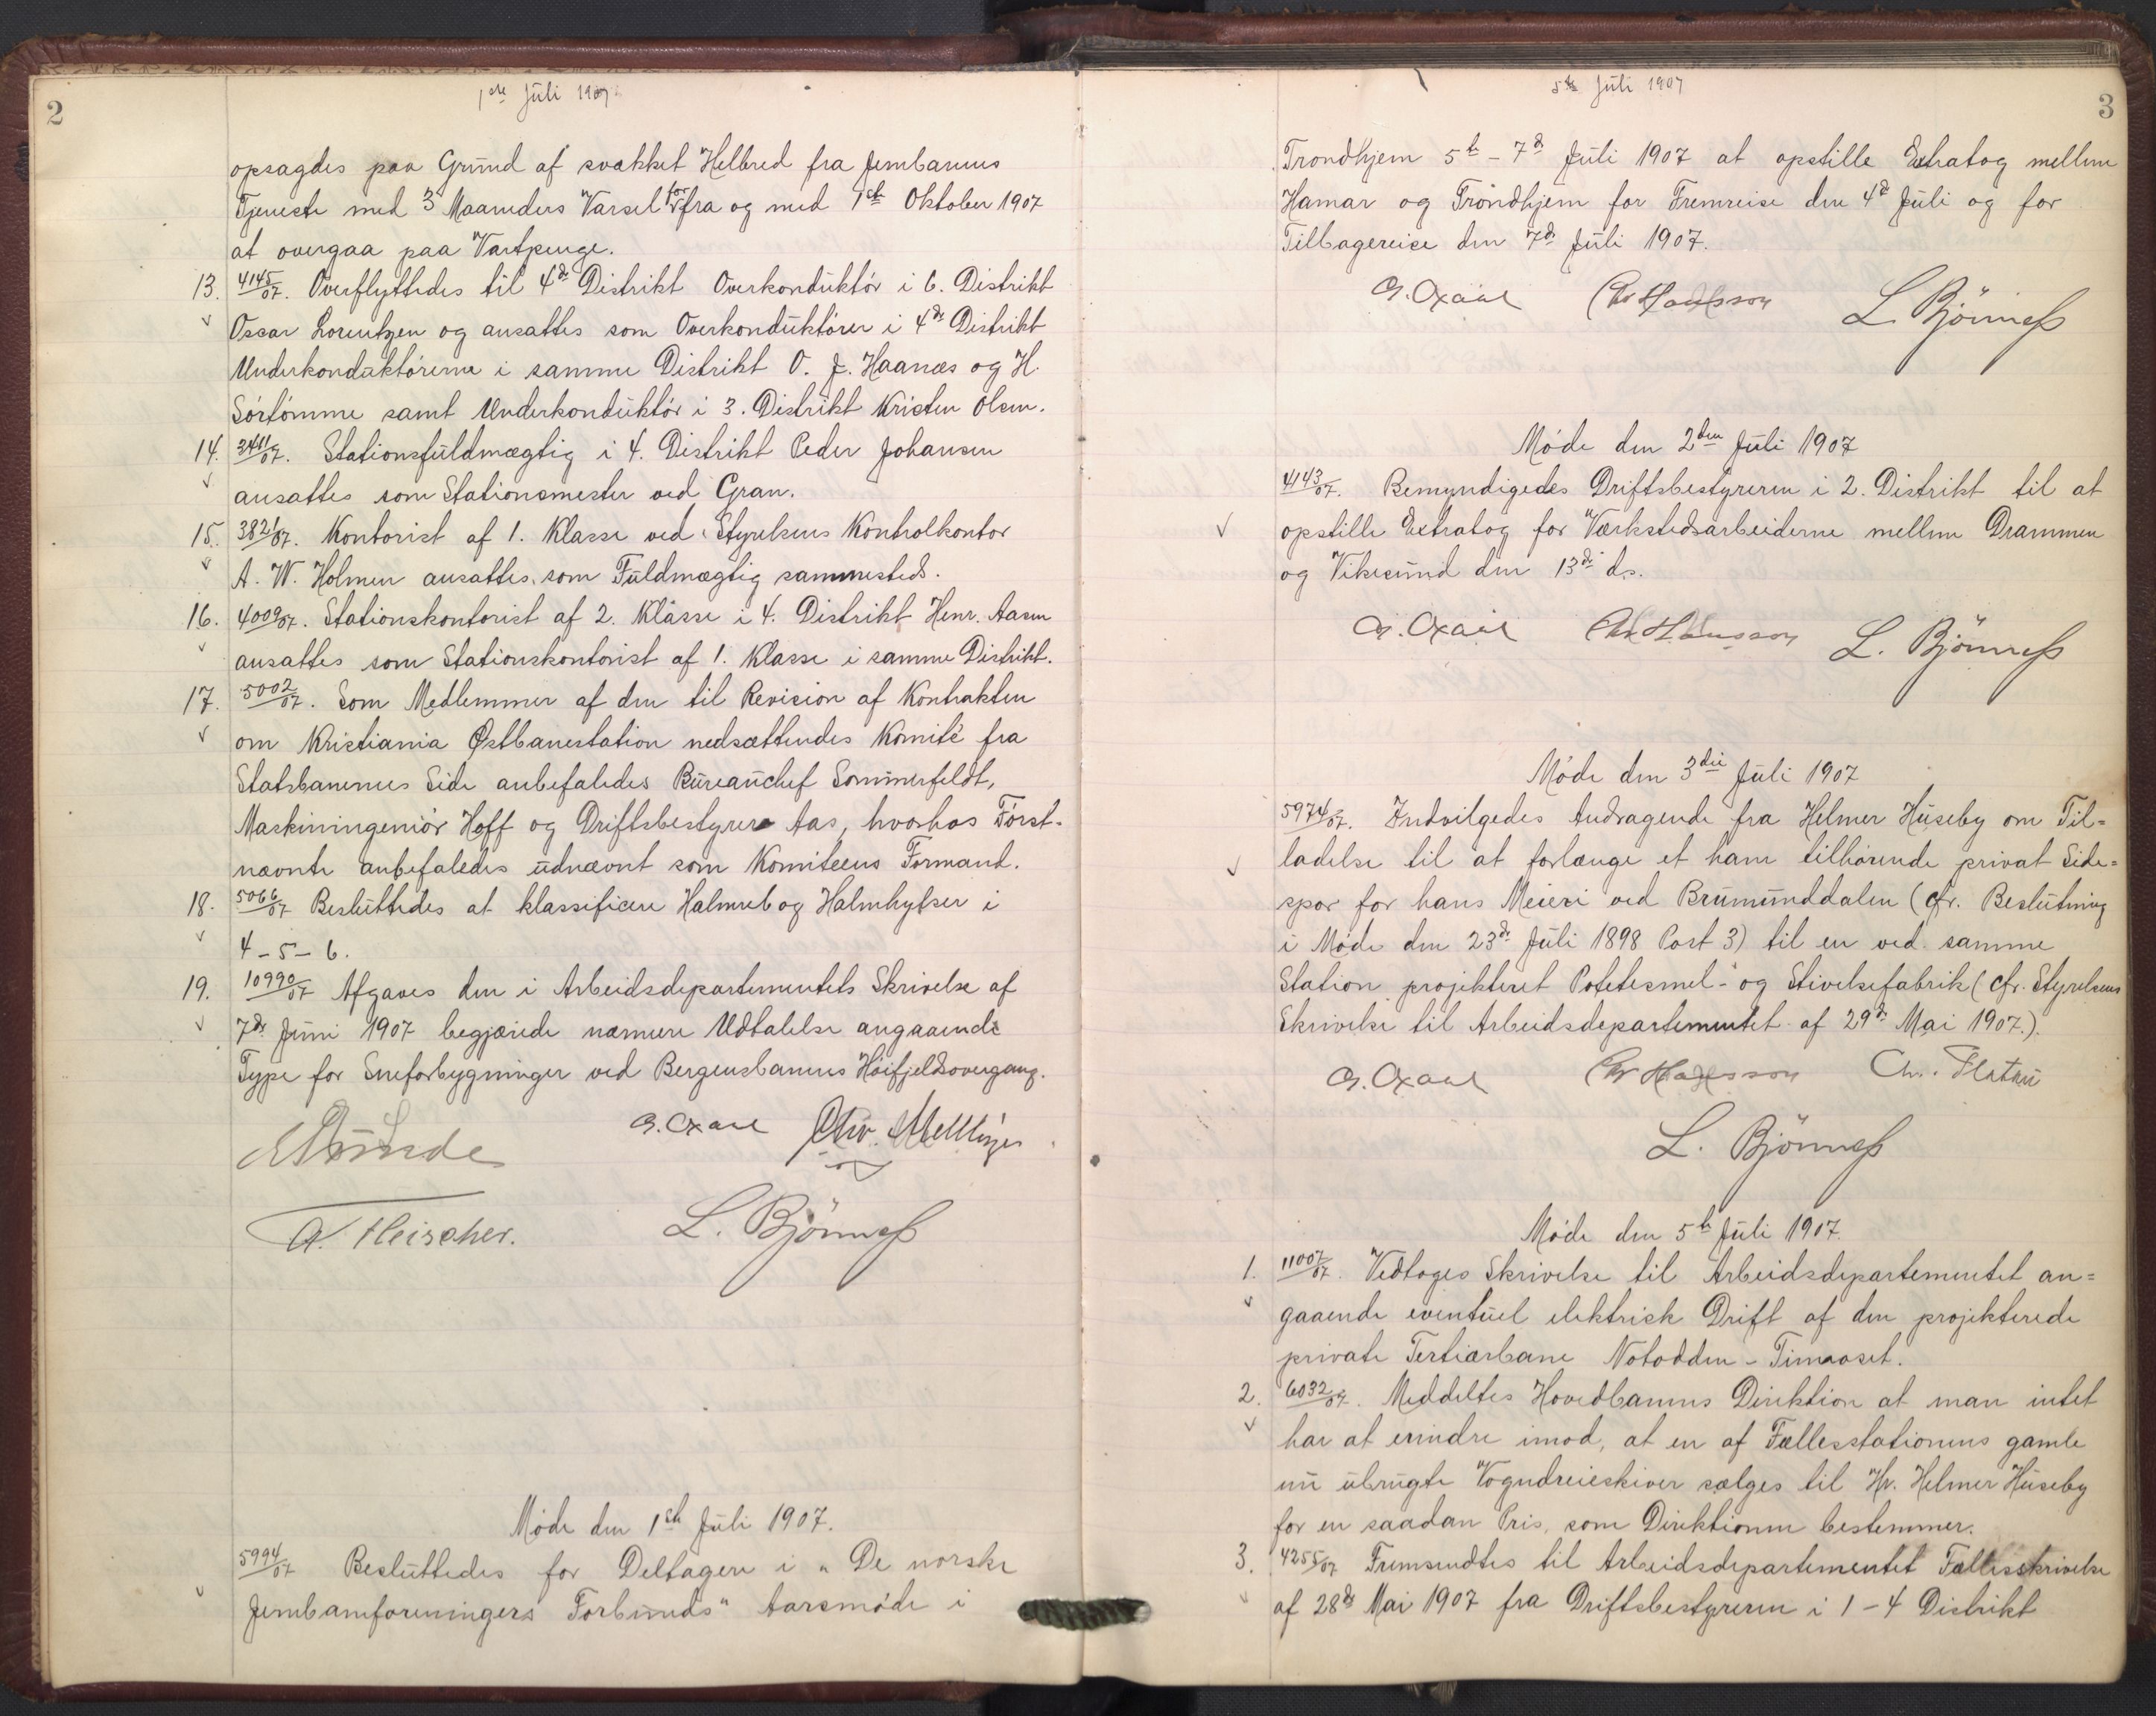 2
1ste Juli 1907.
opsagdes paa Grund af svækket Helbred fra Jernbanens
Tjeneste med 3 Maaneders Varsel for fra og med 1ste Oktober 1907
at overgaa paa Vartpenge.
13. 4145/07. Overflyttedes til 4de Distrikt Overkonduktör i 6. Distrikt
Oscar Lorentzen og ansattes som Overkonduktörer i 4de Distrikt
Underkonduktörerne i samme Distrikt O. J. Haanæs og H.
Sörtömme samt Underkonduktör i 3. Distrikt Kristen Olsen.
14. 3411/07. Stationsfuldmægtig i 4. Distrikt Peder Johansen
ansattes som Stationsmester ved Gran.
15. 3821/07. Kontorist af 1. Klasse ved Styrelsens Kontrolkontor
A. W. Holmen ansattes som Fuldmægtig sammesteds.
16. 4009/07. Stationskontorist af 2. Klasse i 4. Distrikt Henr. Aasen
ansattes som Stationskontorist af 1. Klasse i samme Distrikt.
17. 5002/07. Som Medlemmer af den til Revision af Kontrakten
om Kristiania Østbanestation nedsættendes Komité fra
Statsbanernes Side anbefaledes Bureauchef Sommerfeldt,
Maskiningeniör Hoff og Driftsbestyrer Aas, hvorhos Först-
nævnte anbefaledes udnævnt som Komiteens Formand.
18. 5066/07 Besluttedes at klassificere Halmreb og Halmhylser i
4-5-6.
19. 10990/07 Afgaves den i Arbeidsdepartementets Skrivelse af
7de Juni 1907 begjærede nærmere Udtalelse angaaende
Type for Sneforbygninger ved Bergensbanens Höifjeldsovergang.
G. Oxaal
A. Fleischer. L. Björness
Möde den 1ste Juli 1907.
5994/07 Besluttedes for Deltagere i "De norske
Jernbaneforeningers Forbunds" Aarsmöde i
5te Juli 1907
3
Trondhjem 5te - 7de Juli 1907 at opstille Extratog mellem
Hamar og Trondhjem for Fremreise den 4de Juli og for
Tilbagereise den 7de Juli 1907.
G. Oxaal L. Björness
Möde den 2den Juli 1907
4143/07. Bemyndigedes Driftsbestyreren i 2. Distrikt til at
opstille Extratog for Værkstedsarbeiderne mellem Drammen
og Vikesund den 13de ds.
G. Oxaal L. Björness
Möde den 3die Juli 1907
5974/07. Indvilgedes Andragende fra Helmer Huseby om Til=
ladelse til at forlænge et ham tilhörende privat Side=
spor for hans Meieri ved Brumunddalen (cfr. Beslutning
i Möde den 23de Juli 1898 Post 3) til en ved samme
Station projekteret Potetesmel- og Stivelsefabrik (cfr. Styrelsens
Skrivelse til Arbeidsdepartementet af 29de Mai 1907.).
G. Oxaal Chr. Platou
L. Björness
Möde den 5te Juli 1907.
1. 11007/07. Vedtoges Skrivelse til Arbeidsdepartementet an=
gaaende eventuel elektrisk Drift af den projekterede
private Tertiærbane Notodden - Tinnoset.
2. 6032/07. Meddeltes Hovedbanens Direktion at man intet
har at erindre imod, at en af Fællesstationens gamle
nu ubrugte Vogndreieskiver sælges til Hr. Helmer Huseby
for en saadan Pris, som Direktionen bestemmer.
3. 4255/07 Fremsendtes til Arbeidsdepartementet Fællesskrivelse
af 28de Mai 1907 fra Driftsbestyreren i 1-4 Distrikt